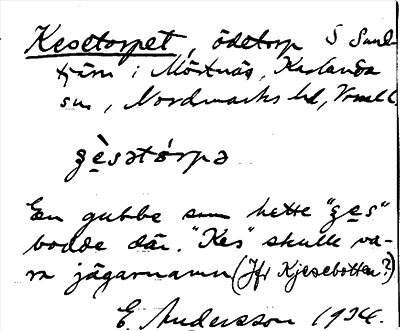 Kesetorpet, ödetorp S Sund-
tjärn i Mörtnäs, Karlanda
sn, Nordmarks hd, Vrml.
ʒèsətórpə
En gubbe som hette "ʒes"
bodde där. "Kes" skulle va-
ra jägarnamn (Jfr Kjesebotten?)
E. Andersson 1934.